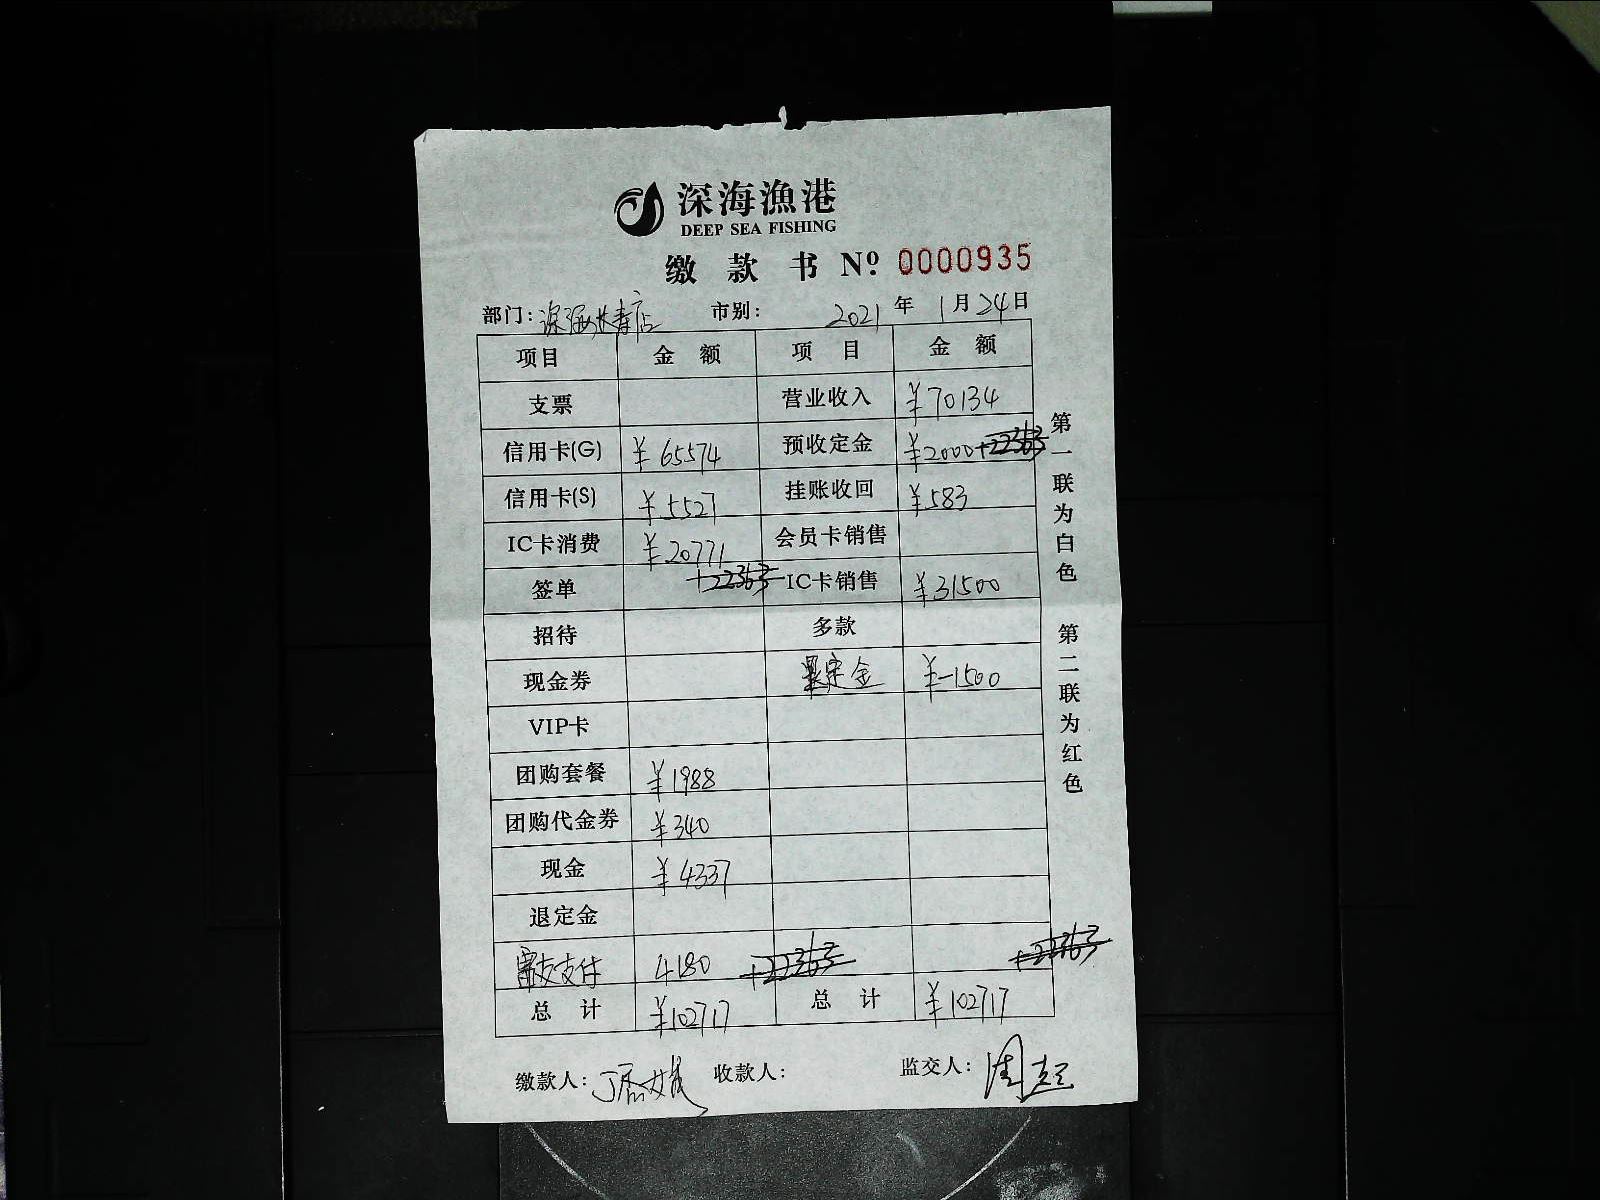 深海漁港
DEEP SEA FISHING
缴款书 Nº 0000935
部门: 市别: 2021年1月24日
项目 金额 项目 金额
支票 营业收入 ¥70134
信用卡(G) ¥65574 预收定金 ¥2000+22363
信用卡(S) ¥5527 挂账收回 ¥583
IC卡消费 ¥20771 会员卡销售
签单 +22363 IC卡销售 ¥31500
招待 多款
现金券 定金 ¥-1500
VIP卡
团购套餐 ¥1988
团购代金券 ¥340
现金 ¥4337
退定金
支付 4180 +22363 +22363
总计 ¥102717 总计 ¥102717
缴款人: 收款人: 监交人:
第一联为白色
第二联为红色